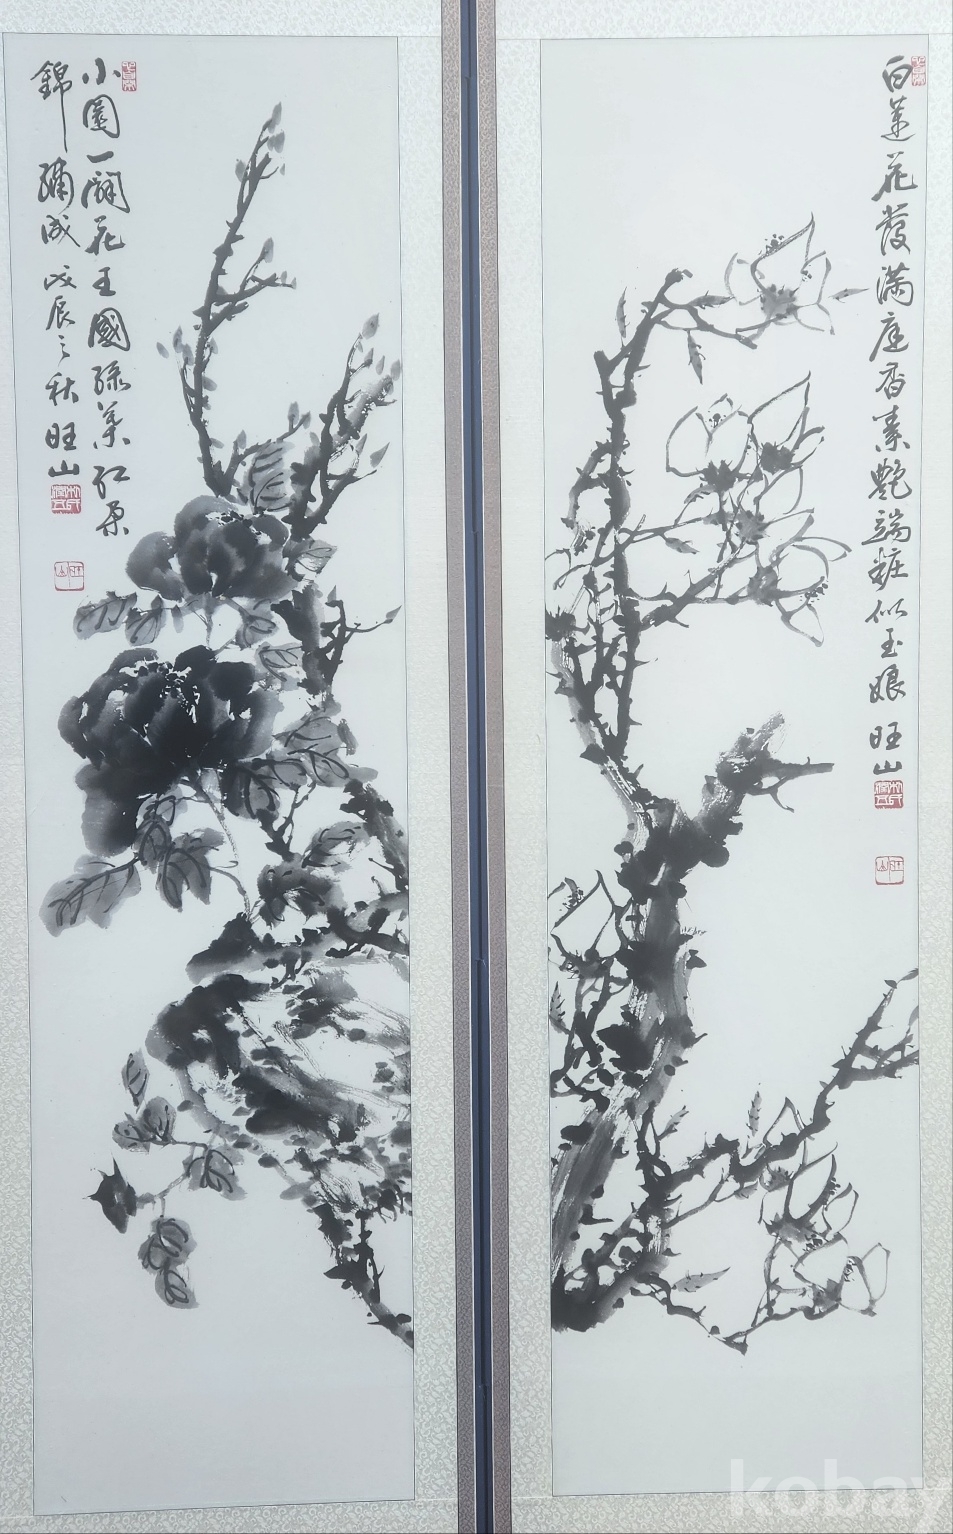 白蓮花發滿庭香素艷端粧似玉娘 旺山
小園一闢花王國綠葉紅朶
錦繡成 戊辰之秋 旺山
kobay